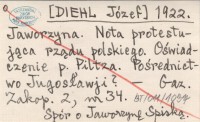 [DIEHL Józef] 1922.
Jaworzyna. Nota protestu-
jąca rządu polskiego. Oświad-
czenie p. Piltza. Pośrednict-
wo Jugosławji? — Gaz.
Zakop. 2, nr 34.
Spór o Jaworzynę Spiską.